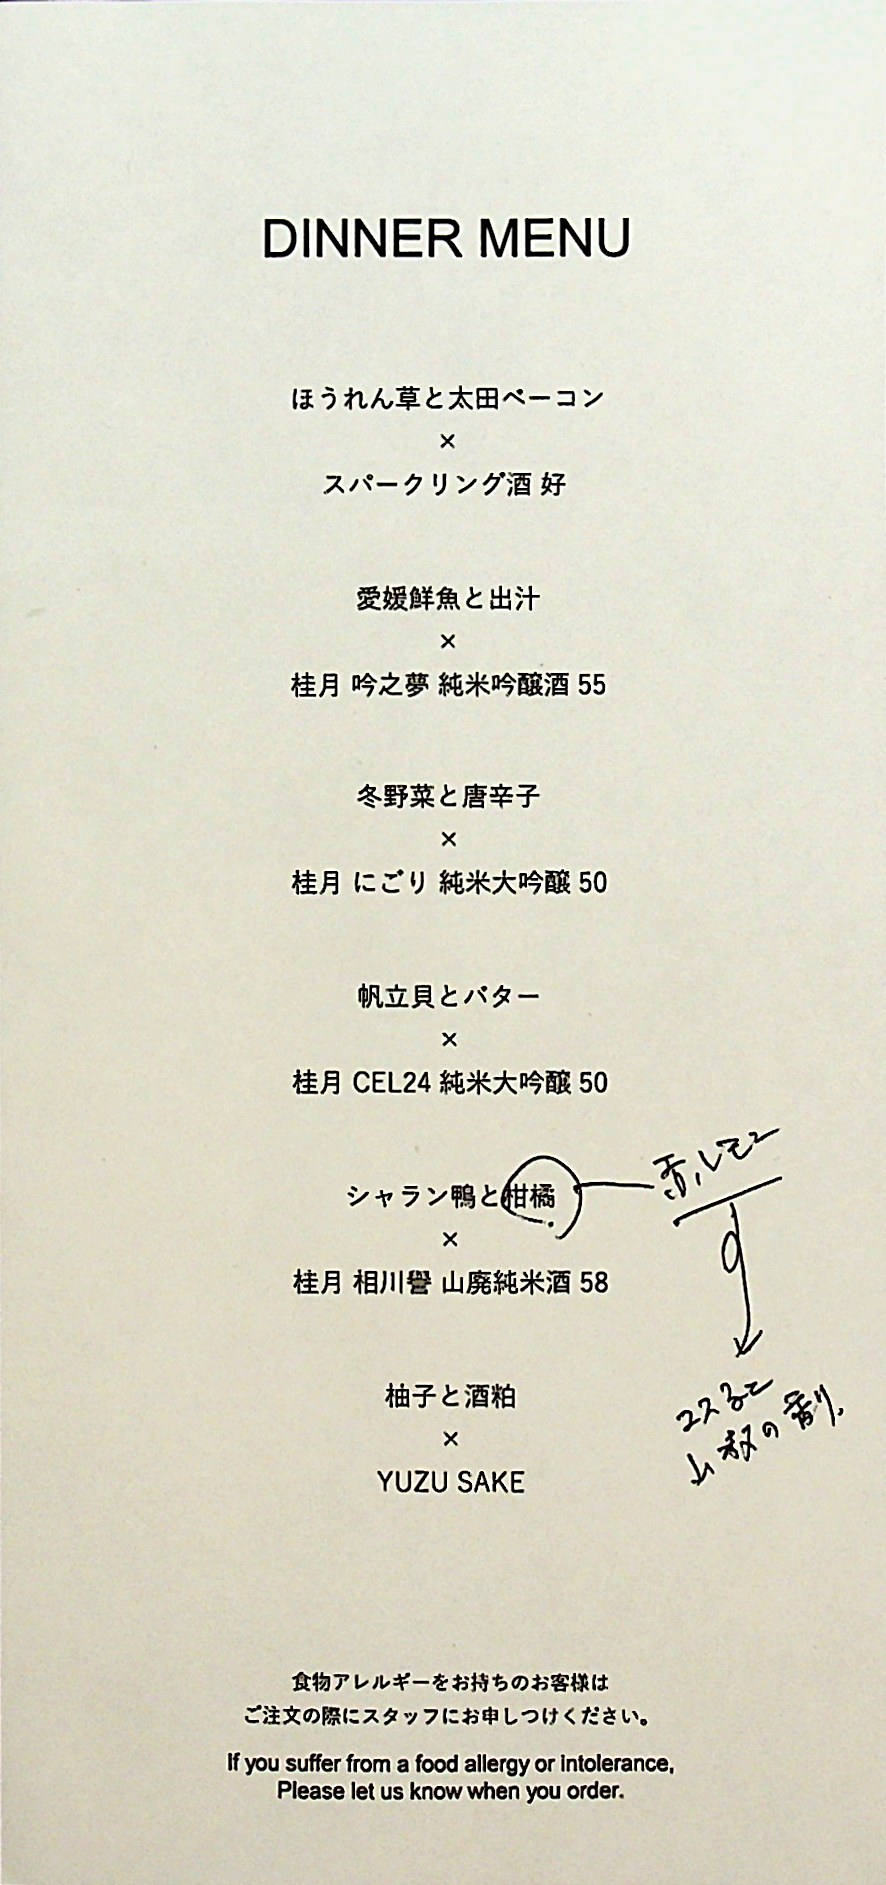 DINNER MENU
ほうれん草と太田ベーコン
×
スパークリング酒 好
愛媛鮮魚と出汁
×
桂月 吟之夢 純米吟醸酒 55
冬野菜と唐辛子
×
桂月 にごり 純米大吟醸 50
帆立貝とバター
×
桂月 CEL24 純米大吟醸 50
シャラン鴨と柑橘
赤レモン
×
桂月 相川譽 山廃純米酒 58
コスると
山椒の香り。
柚子と酒粕
×
YUZU SAKE
食物アレルギーをお持ちのお客様は
ご注文の際にスタッフにお申しつけください。
If you suffer from a food allergy or intolerance,
Please let us know when you order.